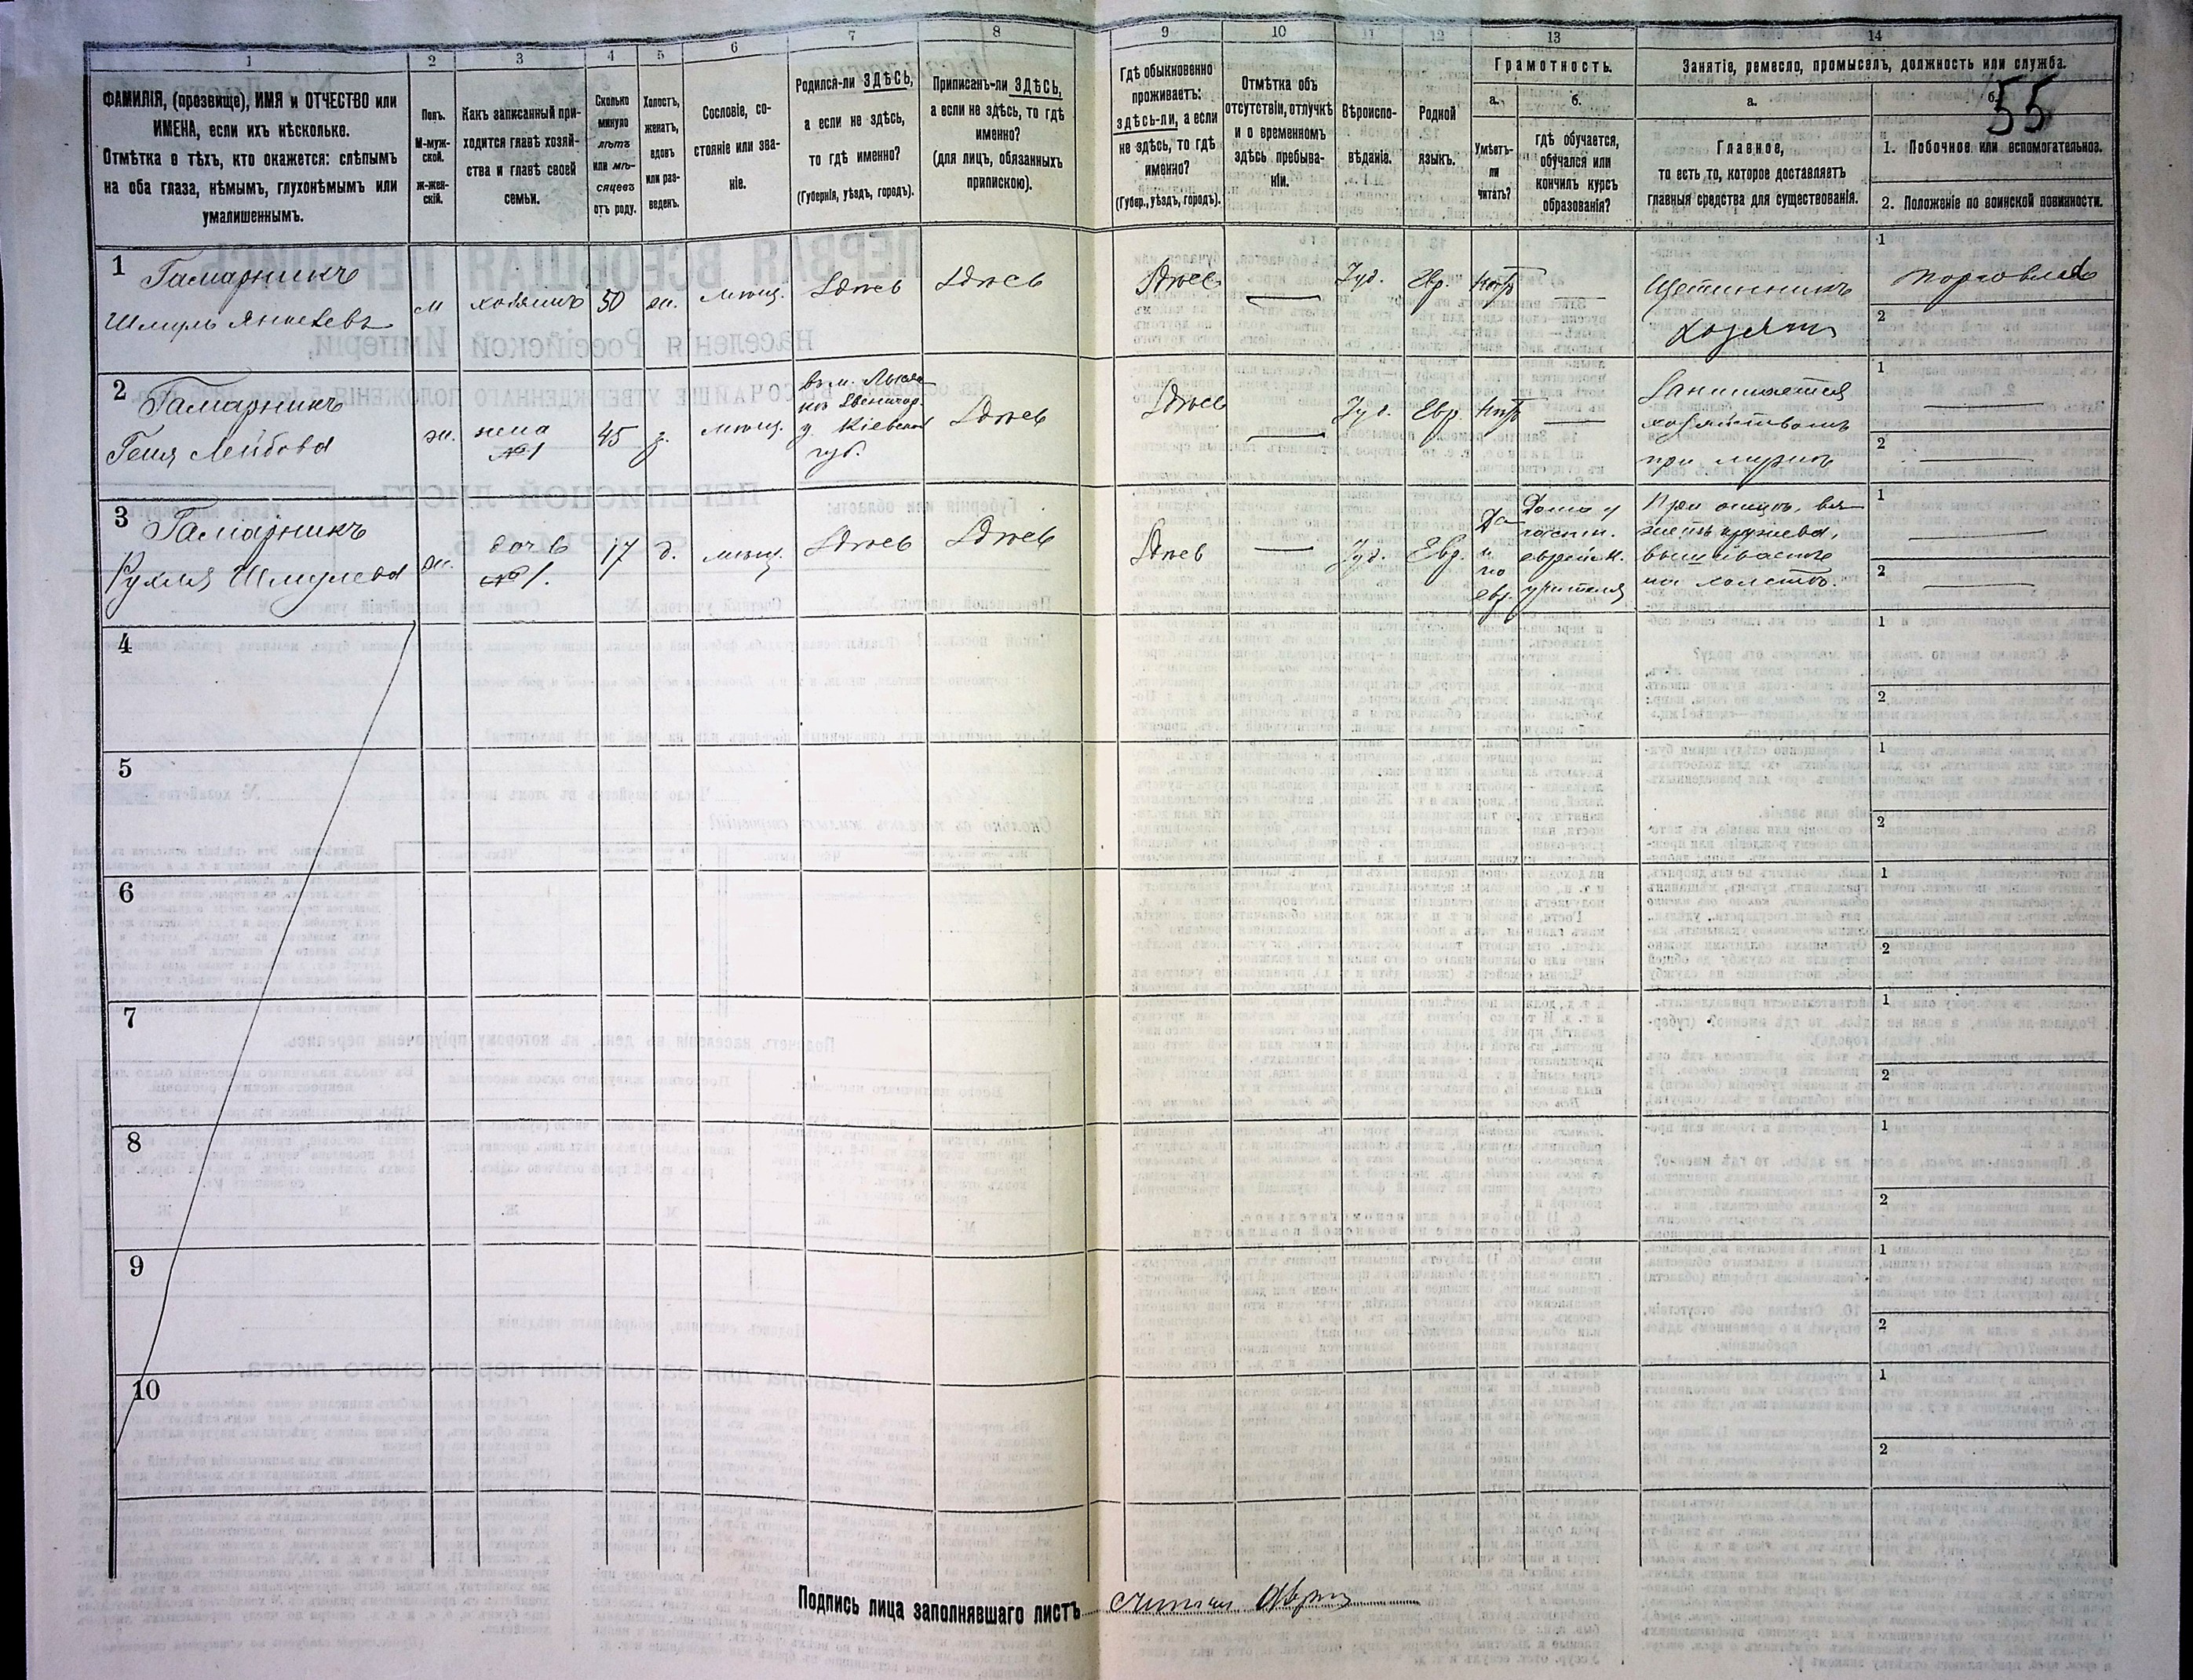 1 2 3 4 5 6 7 8 9 10 11 12 13 14
ФАМИЛІЯ, (прозвище), ИМЯ и ОТЧЕСТВО или
ИМЕНА, если ихъ нѣсколько.
Отмѣтка о тѣхъ, кто окажется: слѣпымъ
на оба глаза, нѣмымъ, глухонѣмымъ или
умалишеннымъ.
Полъ.
М-муж-
ской.
ж-жен-
скій.
Какъ записанный при-
ходится главѣ хозяй-
ства и главѣ своей
семьи.
Сколько
минуло
лѣтъ
или мѣ-
сяцевъ
отъ роду.
Холостъ,
женатъ,
вдовъ
или раз-
веденъ.
Сословіе, со-
стояніе или зва-
ніе.
Родился-ли ЗДѢСЬ,
а если не здѣсь,
то гдѣ именно?
(Губернія, уѣздъ, городъ).
Приписанъ-ли ЗДѢСЬ,
а если не здѣсь, то гдѣ
именно?
(для лицъ, обязанныхъ
припискою).
Гдѣ обыкновенно
проживаетъ:
здѣсь-ли, а если
не здѣсь, то гдѣ
именно?
(Губер., уѣздъ, городъ).
Отмѣтка объ
отсутствіи, отлучкѣ
и о временномъ
здѣсь пребыва-
ніи.
Вѣроиспо-
вѣданіе.
Родной
языкъ.
Грамотность.
а.
Умѣетъ-
ли
читать?
б.
гдѣ обучается,
обучался или
кончилъ курсъ
образованія?
Занятіе, ремесло, промыселъ, должность или служба.
а.
Главное,
то есть то, которое доставляетъ
главныя средства для существованія.
б.
55
1. Побочное или вспомогательное.
2. Положеніе по воинской повинности.
1 Гамарникъ
Шмуль Янкелевъ
м хозяинъ 50 ж. мѣщ. Здѣсь Здѣсь Здѣсь — Іуд. Евр. Нѣтъ —
Щетинникъ
хозяинъ
1 торговля
2
2 Гамарникъ
Геня Лейбова
ж. жена
№1
45 з. мѣщ.
въ м. Лысян-
кѣ Звенигор.
у. Кіевской
губ.
Здѣсь Здѣсь — Іуд. Евр. Нѣтъ —
Занимается
хозяйствомъ
при мужѣ
1 —
2 —
3 Гамарникъ
Рухля Шмулева
ж. дочь
№1.
17 д. мѣщ. Здѣсь Здѣсь Здѣсь — Іуд. Евр.
Да
и
по
евр.
Дома у
частн.
еврейск.
учителя
При отцѣ, вя-
жетъ кружева,
вышиваетъ
на холстѣ.
1 —
2 —
4
1
2
5
1
2
6
1
2
7
1
2
8
1
2
9
1
2
10
1
2
Подпись лица заполнявшаго листъ